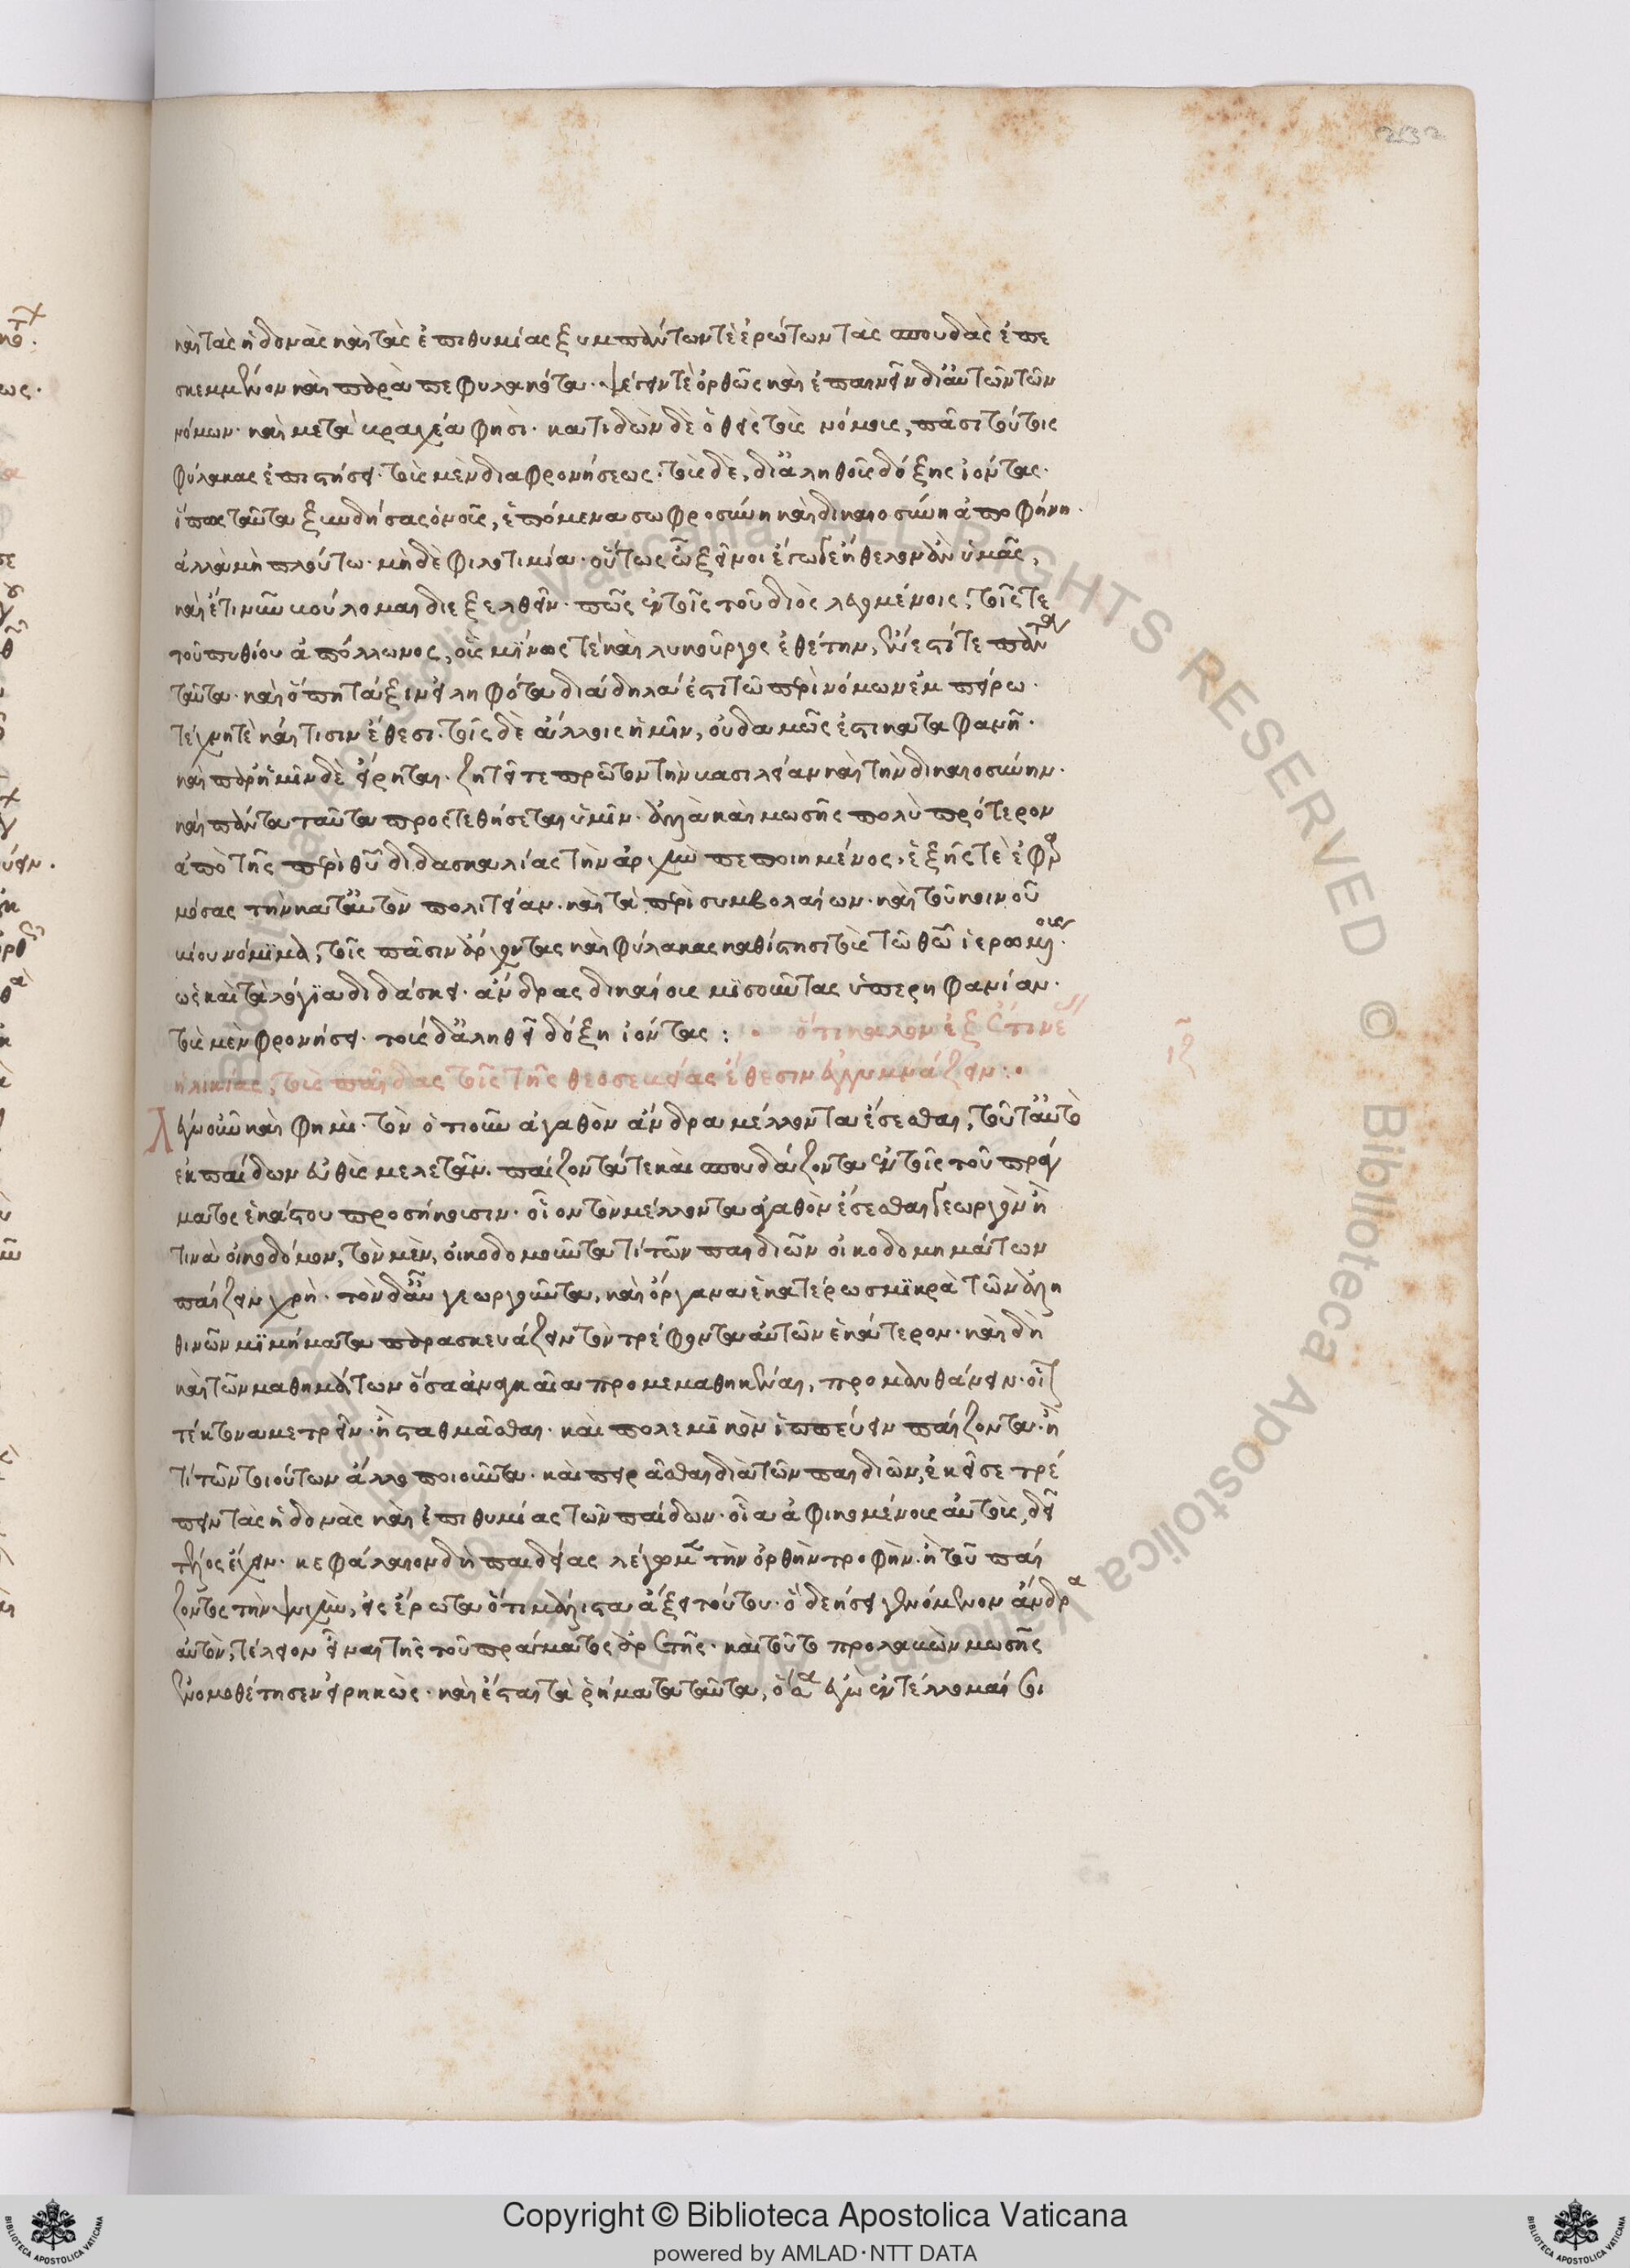 232
καὶ τὰς ἡδονὰς καὶ τὰς ἐπιθυμίας ξυμπάντων τὲ ἐρώτων τὰς σπουδὰς ἐπε
σκεμμένον καὶ παρὰ πεφυλακότα· ψέγειν τὲ ὀρθῶς καὶ ἐπαινεῖν δι' αὐτῶν τῶν
νόμων· καὶ μετὰ βραχέα φησὶ· κατιδὼν δὲ ὁ θεὶς τοὺς νόμους, πᾶσι τούτοις
φύλακας ἐπιστήσει· τοὺς μὲν διὰ φρονήσεως· τοὺς δὲ, δι' ἀληθοῦς δόξης ἰόντας·
ὅπως ταῦτα ξυνδήσας ὁ νοῦς, ἑπόμενα σωφροσύνη καὶ δικαιοσύνη ἀποφήνη·
ἀλλὰ μὴ πλούτω· μὴ δὲ φιλοτιμία· οὕτως ὦ ξένοι ἔγωγε ἤθελον ἂν ὑμᾶς,
καὶ ἔτι νῦν βούλομαι διεξελθεῖν· πῶς ἐν τοῖς τοῦ διὸς λεγομένοις, τοῖς τε
τοῦ πυθίου ἀπόλλωνος, οὓς μίνως τὲ καὶ λυκοῦργος ἐθέτην, ἔνεστί τε πάντα
ταῦτα· καὶ ὅπη τάξιν εἰληφότα διάδηλά ἐστι τῶ περὶ νόμων ἐμπείρω·
τέχνη τὲ καί τισιν ἔθεσι· τοῖς δὲ ἄλλοις ἡμῖν, οὐδαμῶς ἐστι καταφανῆ·
καὶ παρ' ἡμῖν δὲ εἴρηται· ζητεῖτε πρῶτον τὴν βασιλείαν καὶ τὴν δικαιοσύνην·
καὶ πάντα ταῦτα προστεθήσεται ὑμῖν· ἀλλὰ καὶ μωσῆς πολὺ πρότερον
ἀπὸ τῆς περὶ θεοῦ διδασκαλίας τὴν ἀρχὴν πεποιημένος· ἑξῆς τὲ ἐφαρ
μόσας τὴν κατ' αὐτὸν πολιτείαν· καὶ τὰ περὶ συμβολαίων· καὶ τοῦ κοινοῦ
βίου νόμιμα, τοῖς πᾶσιν ἄρχοντας καὶ φύλακας καθίστησι τοὺς τῶ θεῶ ἱερωμένους·
ὡς καὶ τὰ λόγια διδάσκει· ἄνδρας δικαίους μισοῦντας ὑπερηφανίαν·
τοὺς μὲν φρονήσει· τοὺς δ' ἀληθεῖ δόξη ἰόντας: ὅτι καλὸν ἐξ ἔτι νέας
ιζ
ἡλικίας, τοὺς παῖδας τοῖς τῆς θεοσεβείας ἔθεσιν ἐγγυμνάζειν:·
λέγω οὖν καὶ φημὶ· τὸν ὁτιοῦν ἀγαθὸν ἄνδρα μέλλοντα ἔσεσθαι, τοῦτ' αὐτὸ
ἐκ παίδων εὐθὺς μελετᾶν· παίζοντά τε καὶ σπουδάζοντα ἐν τοῖς τοῦ πράγ
ματος ἑκάστου προσήκουσιν· οἷον τὸν μέλλοντα ἀγαθὸν ἔσεσθαι γεωργὸν ἤ
τινα οἰκοδόμον, τὸν μὲν, οἰκοδομοῦντα τί τῶν παιδίων οἰκοδομημάτων
παίζειν χρή· τὸν δ' αὖ γεωργοῦντα, καὶ ὄργανα ἑκατέρω σμικρὰ τῶν ἀλη
θινῶν μιμήματα παρασκευάζειν τὸν τρέφοντα αὐτῶν ἑκάτερον· καὶ δὴ
καὶ τῶν μαθημάτων ὅσα ἀναγκαῖα προμεμαθηκέναι, προμανθάνειν· οἷον
τέκτονα μετρεῖν· ἢ σταθμᾶσθαι· καὶ πολεμικὸν ἱππεύειν παίζοντα· ἤ
τί τῶν τοιούτων ἄλλο ποιοῦντα· καὶ πειρᾶσθαι διὰ τῶν παιδίων, ἐκεῖσε τρέ
πειν τὰς ἡδονὰς καὶ ἐπιθυμίας τῶν παίδων· οἷα ἀφικομένους αὐτοὺς, δεῖ
τέλος ἔχειν· κεφάλαιον δὴ παιδείας λέγομεν τὴν ὀρθὴν τροφὴν· ἣ τοῦ παί
ζοντος τὴν ψυχὴν, εἰς ἔρωτα ὅτι μάλιστα ἄξει τούτου· ὃ δεήσει γενόμενον ἄνδρα
αὐτὸν, τέλειον εἶναι τῆς τοῦ πράγματος ἀρετῆς· καὶ τοῦτο προλαβὼν μωσῆς
ἐνομοθέτησεν εἰρηκὼς· καὶ ἔσται τὰ ῥήματα ταῦτα, ὅσα ἐγὼ ἐντέλλομαί σοι
Copyright © Biblioteca Apostolica Vaticana
powered by AMLAD·NTT DATA